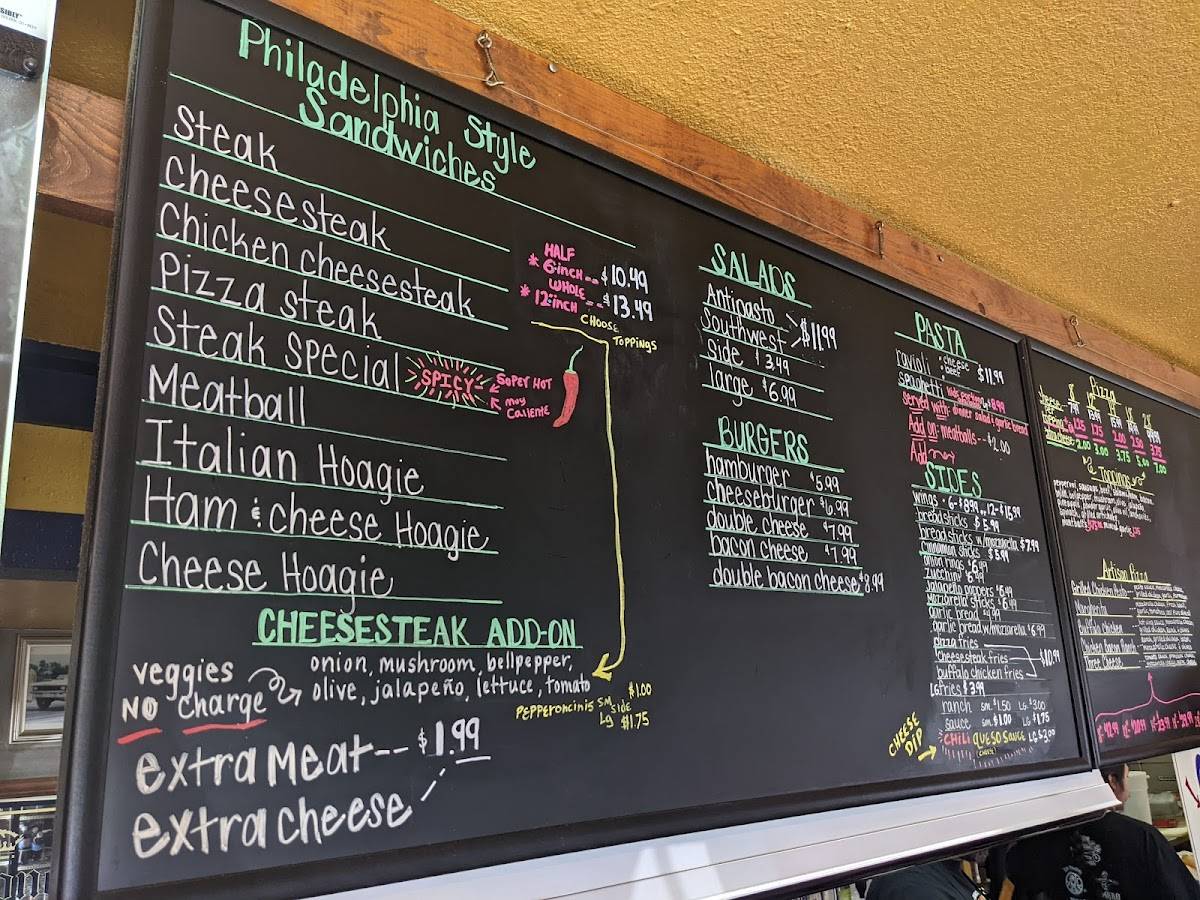 Philadelphia Style
Sandwiches
Steak
Cheesesteak
Chicken cheesesteak
Pizza steak
Steak Special SPICY SUPER HOT
muy
Caliente
Meatball
Italian Hoagie
Ham & cheese Hoagie
Cheese Hoagie
HALF
* 6-inch -- $10.49
WHOLE
* 12-inch -- $13.49
CHOOSE
TOPPINGS
CHEESESTEAK ADD-ON
veggies
NO charge
onion, mushroom, bellpepper,
olive, jalapeño, lettuce, tomato
PEPPERONCINIS SM SIDE $1.00
Lg $1.75
extra Meat -- $1.99
extra cheese
SALADS
Antipasto
Southwest > $11.99
Side $3.49
large $6.99
BURGERS
hamburger $5.99
cheeseburger $6.99
double cheese $7.99
bacon cheese $7.99
double bacon cheese $8.99
PASTA
ravioli : cheese
beef $11.99
spaghetti kids portion $8.99
Served with: dinner salad & garlic bread
Add on: meatballs -- $2.00
Add
SIDES
wings - 6-$8.99 ... 12-$15.99
breadsticks $5.99
breadsticks w/mozzarella $7.99
cinnamon sticks $5.99
onion rings $6.49
zucchini $6.99
Jalapeño poppers $6.49
Mozzarella sticks $6.49
garlic bread $4.99
garlic bread w/mozzarella $6.99
pizza fries
cheesesteak fries $10.99
buffalo chicken fries
LG fries $3.99
ranch sm. $1.50 LG. $3.00
sauce sm. $1.00 LG $1.75
CHEESE
DIP
CHILI QUESO SAUCE LG $3.00
Pizza
Cheese-
Toppings
Artisan Pizza
Grilled Chicken Pesto
Margherita
Buffalo Chicken
Chicken Bacon Ranch
Three Cheese